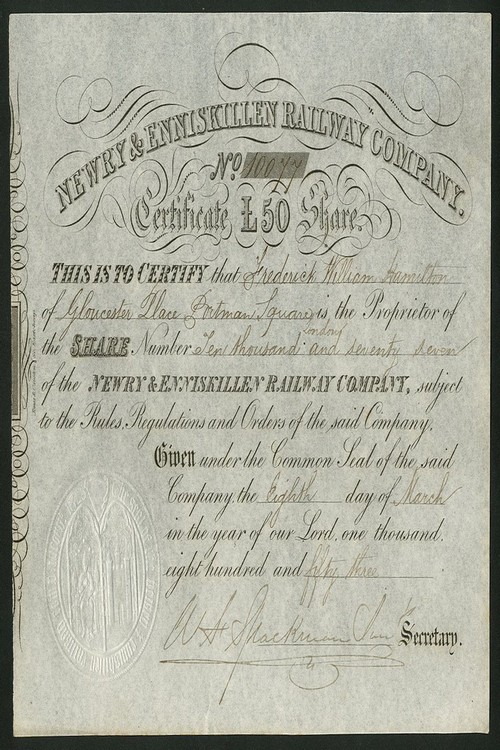 NEWRY & ENNISKILLEN RAILWAY COMPANY.
No 10077
Certificate £50 Share.
THIS IS TO CERTIFY that Frederick William Hamilton
of Gloucester Place Portman Square London is, the Proprietor of
the SHARE Number Ten thousand and seventy seven
of the NEWRY & ENNISKILLEN RAILWAY COMPANY, subject
to the Rules, Regulations and Orders of the said Company.
Given under the Common Seal of the said
Company, the Eighth day of March
in the year of our Lord, one thousand,
eight hundred and fifty three
Secretary.